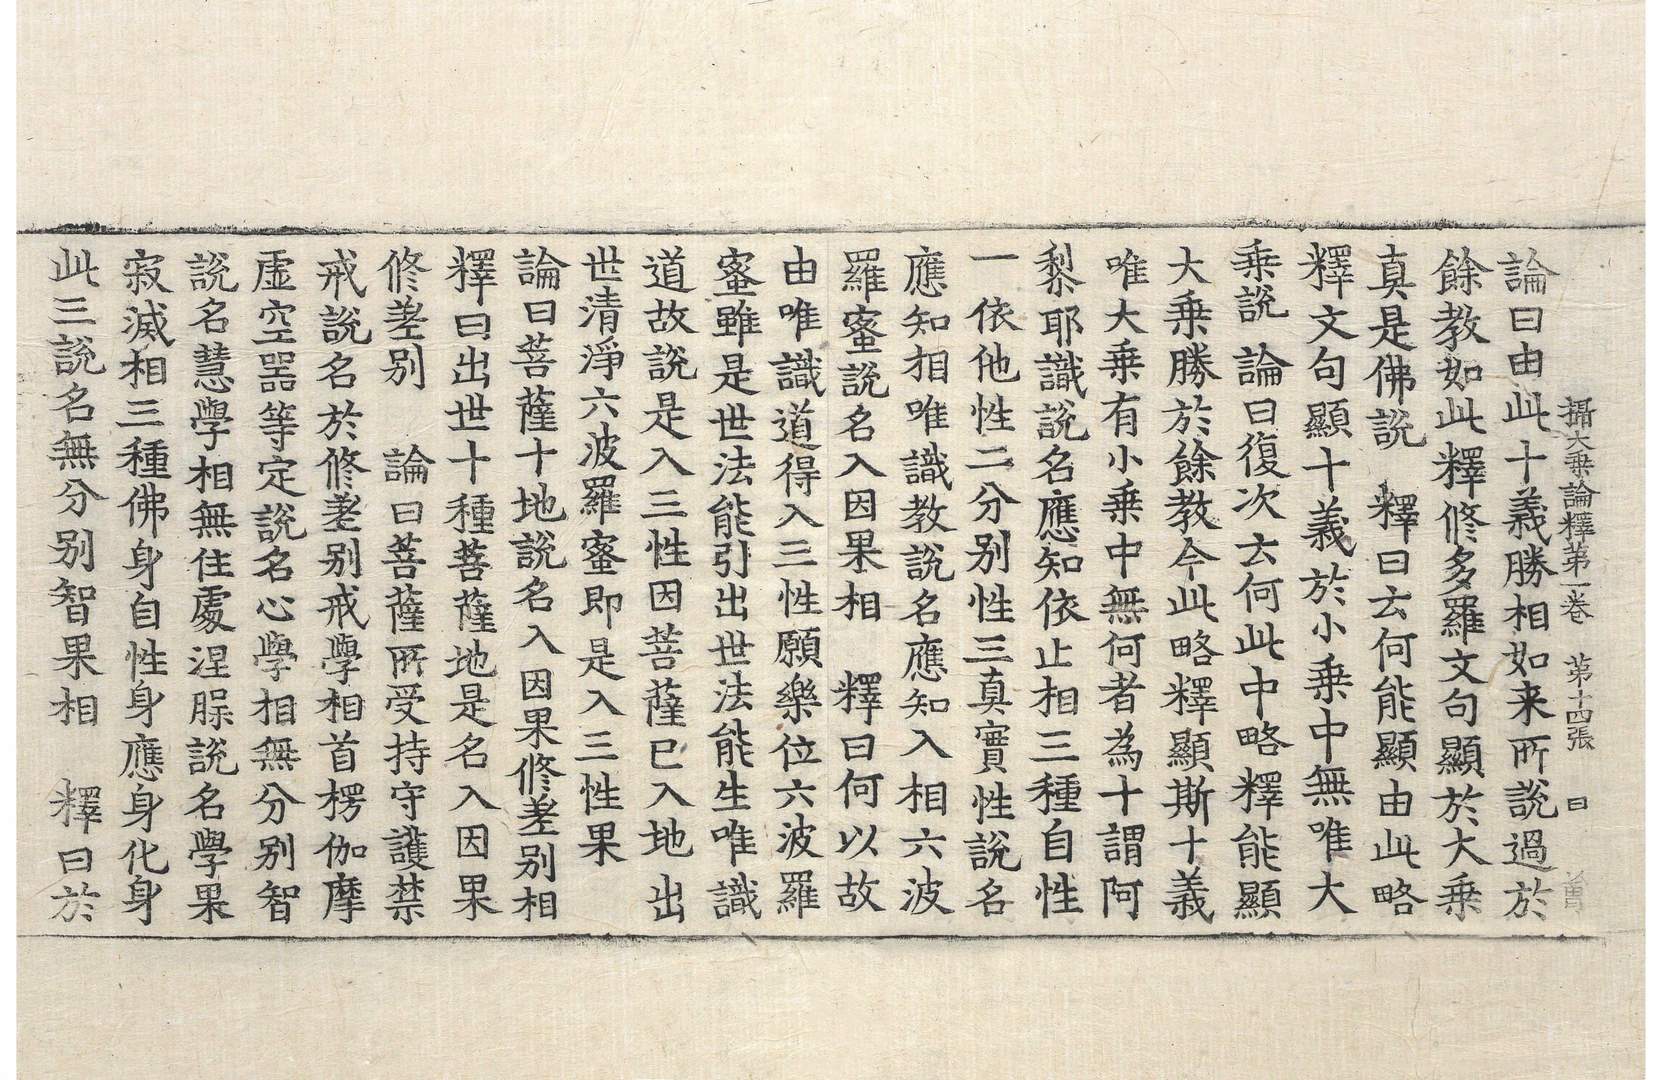 攝大乗論釋第一卷　第十四張　曰
論曰由此十義勝相如来所説過於
餘教如此釋修多羅文句顯於大乗
真是佛説　釋曰云何能顯由此略
釋文句顯十義於小乗中無唯大
乗説　論曰復次云何此中略釋能顯
大乗勝於餘教今此略釋顯斯十義
唯大乗有小乗中無何者為十謂阿
黎耶識説名應知依止相三種自性
一依他性二分别性三真實性説名
應知相唯識教説名應知入相六波
羅蜜説名入因果相　釋曰何以故
由唯識道得入三性願樂位六波羅
蜜雖是世法能引出世法能生唯識
道故説是入三性因菩薩已入地出
世清淨六波羅蜜即是入三性果
論曰菩薩十地説名入因果修差别相
釋曰出世十種菩薩地是名入因果
修差别　論曰菩薩所受持守護禁
戒説名於修差别戒學相首楞伽摩
虚空器等定説名心學相無分别智
説名慧學相無住處涅槃説名學果
寂滅相三種佛身自性身應身化身
此三説名無分别智果相　釋曰於